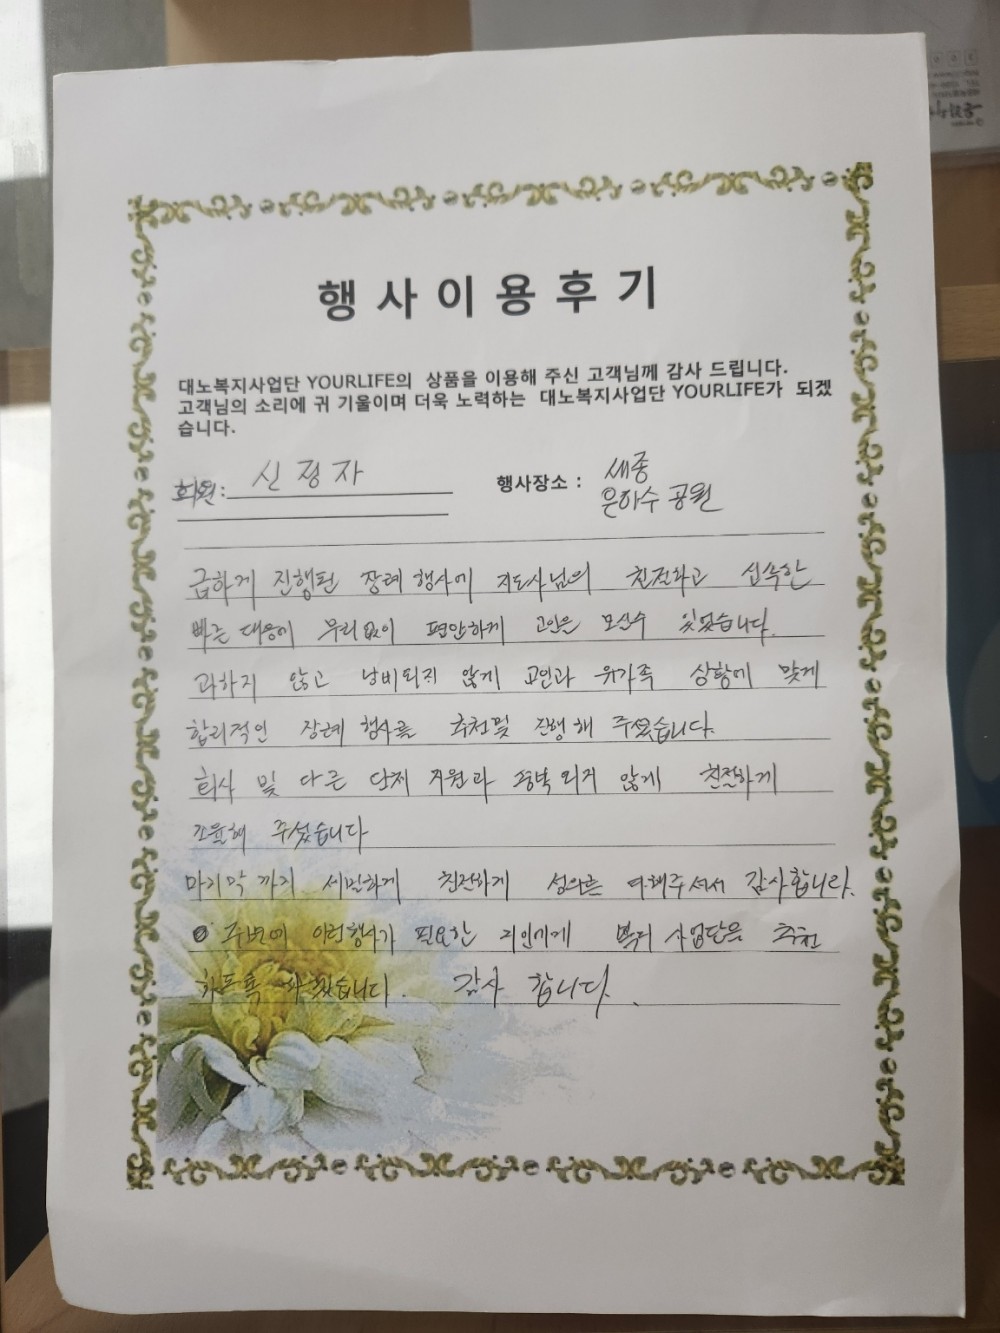 행사이용후기
대노복지사업단 YOURLIFE의 상품을 이용해 주신 고객님께 감사 드립니다.
고객님의 소리에 귀 기울이며 더욱 노력하는 대노복지사업단 YOURLIFE가 되겠
습니다.
회원: 신정자 행사장소 : 세종
은하수 공원
급하게 진행된 장례 행사에 지도사님의 친절하고 신속한
빠른 대응에 무리없이 편안하게 고인을 모실수 있었습니다.
과하지 않고 낭비되지 않게 고인과 유가족 상황에 맞게
합리적인 장례 행사를 추천및 진행해 주셨습니다.
회사 및 다른 단체 지원과 중복되지 않게 친절하게
조율해 주셨습니다
마지막 까지 세밀하게 친절하게 성의를 다해주셔서 감사합니다.
주변에 이런행사가 필요한 지인에게 복지 사업단을 추천
하도록 하겠습니다. 감사 합니다.